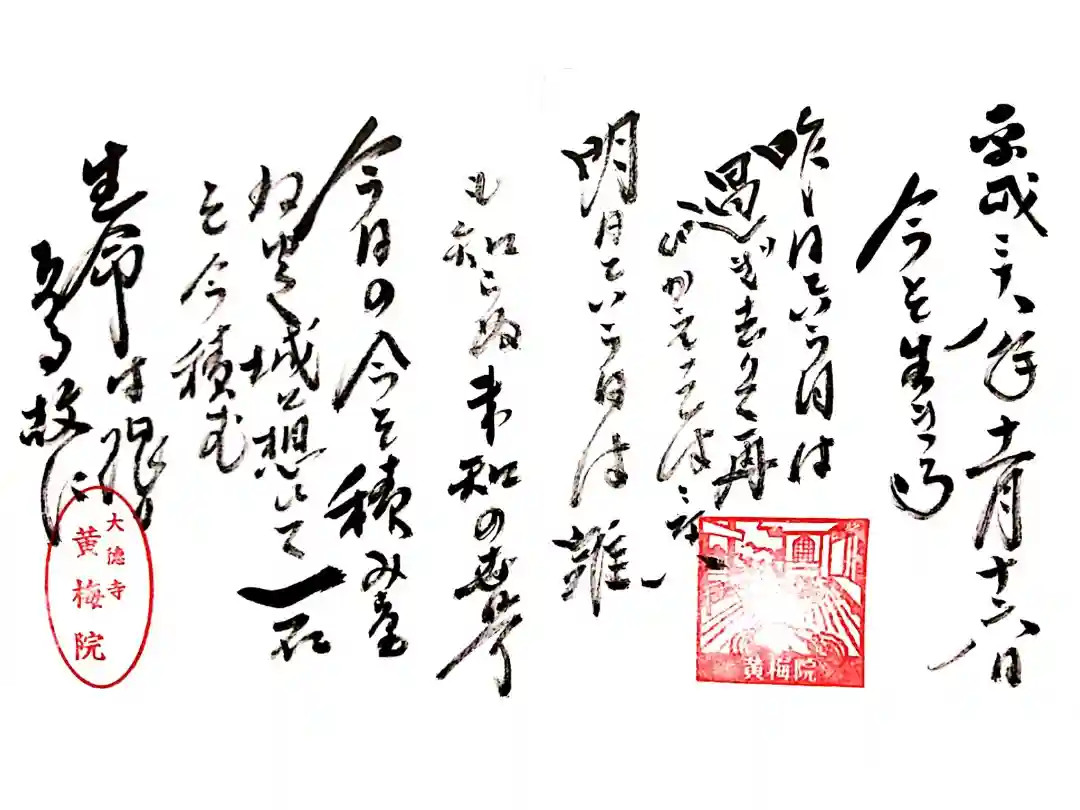 平成二十八年十一月十六日
今を生きる
昨日という日は
過ぎ去りて再
びかえ
明日という日は誰
も知らぬ未知の世界
今日の今を積み重
ね 城を想いて一石
を今積む
生命は
故に
黄梅院
大徳寺
黄梅院